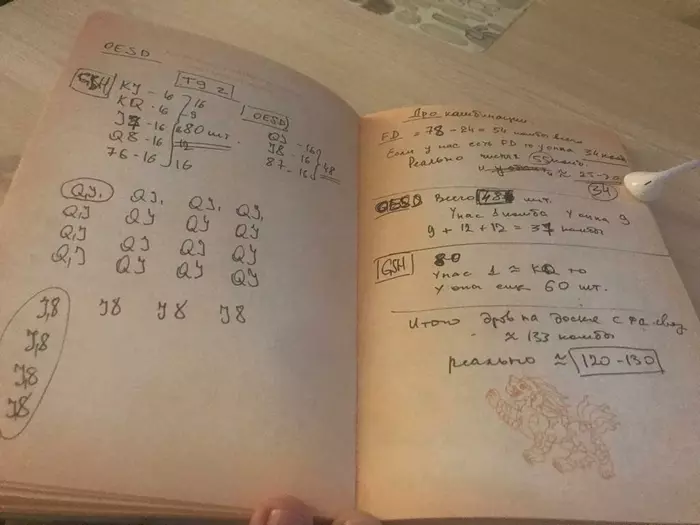 OESD
GSH
T9 2
KJ - 6
KQ - 6
J7 - 16
Q8 - 16
76 - 16
16
9
80 шт.
12
16
OESD
QJ - 16
J8 - 16
87 - 16
48
QJ, QJ, QJ, QJ,
QJ QJ QJ QJ
QJ QJ QJ QJ
QJ QJ QJ QJ
J8 J8 J8 J8
J8
J8
J8
Дро комбинации
FD = 78 - 24 = 54 комбо всего
Если у нас есть FD то у опа 34 комб
Реально
≈ 25-30
34
OESD Всего 48 шт.
У нас 1 комбо У опа 9
9 + 12 + 12 = 37 комбо
GSH 80
У нас 1 ≈ KQ то
у опа 60 шт.
Итого дров на доске с
≈ 133 комбо
реально ≈ 120-130